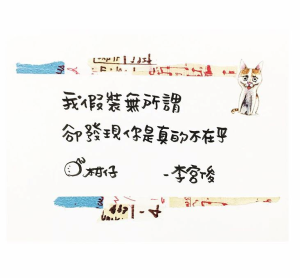 我假裝無所謂
卻發現你是真的不在乎
柑仔 -李宮俊